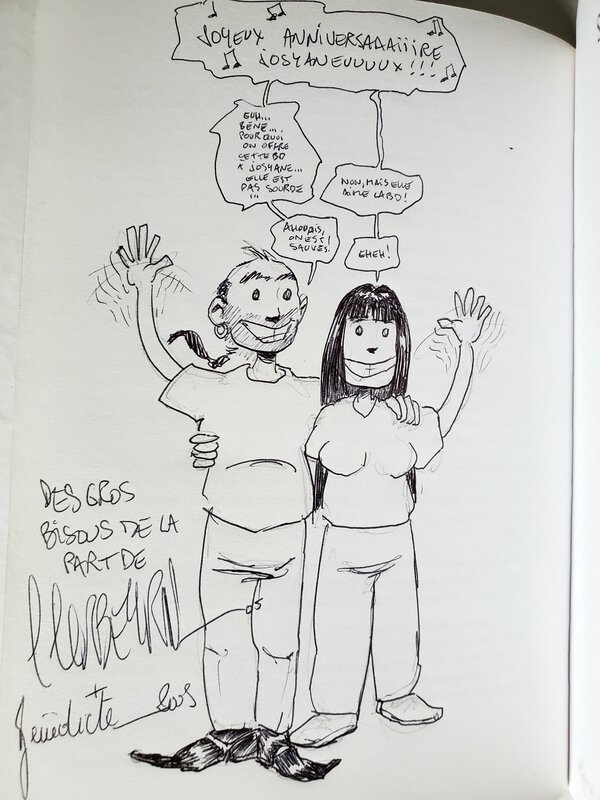 JOYEUX ANNIVERSAAAiiiRE
JOSYANEUUUUX!!!
EUH...
BÉNÉ...,
POURQUOI
ON OFFRE
CETTE BD
À JOSYANE...
ELLE EST
PAS SOURDE
!!!
NON, MAIS ELLE
AIME LA BD!
AHOUAIS,
ON EST
SAUVÉS.
EHEH!
DES GROS
BISOUS DE LA
PART DE
05
Bénédicte 2005